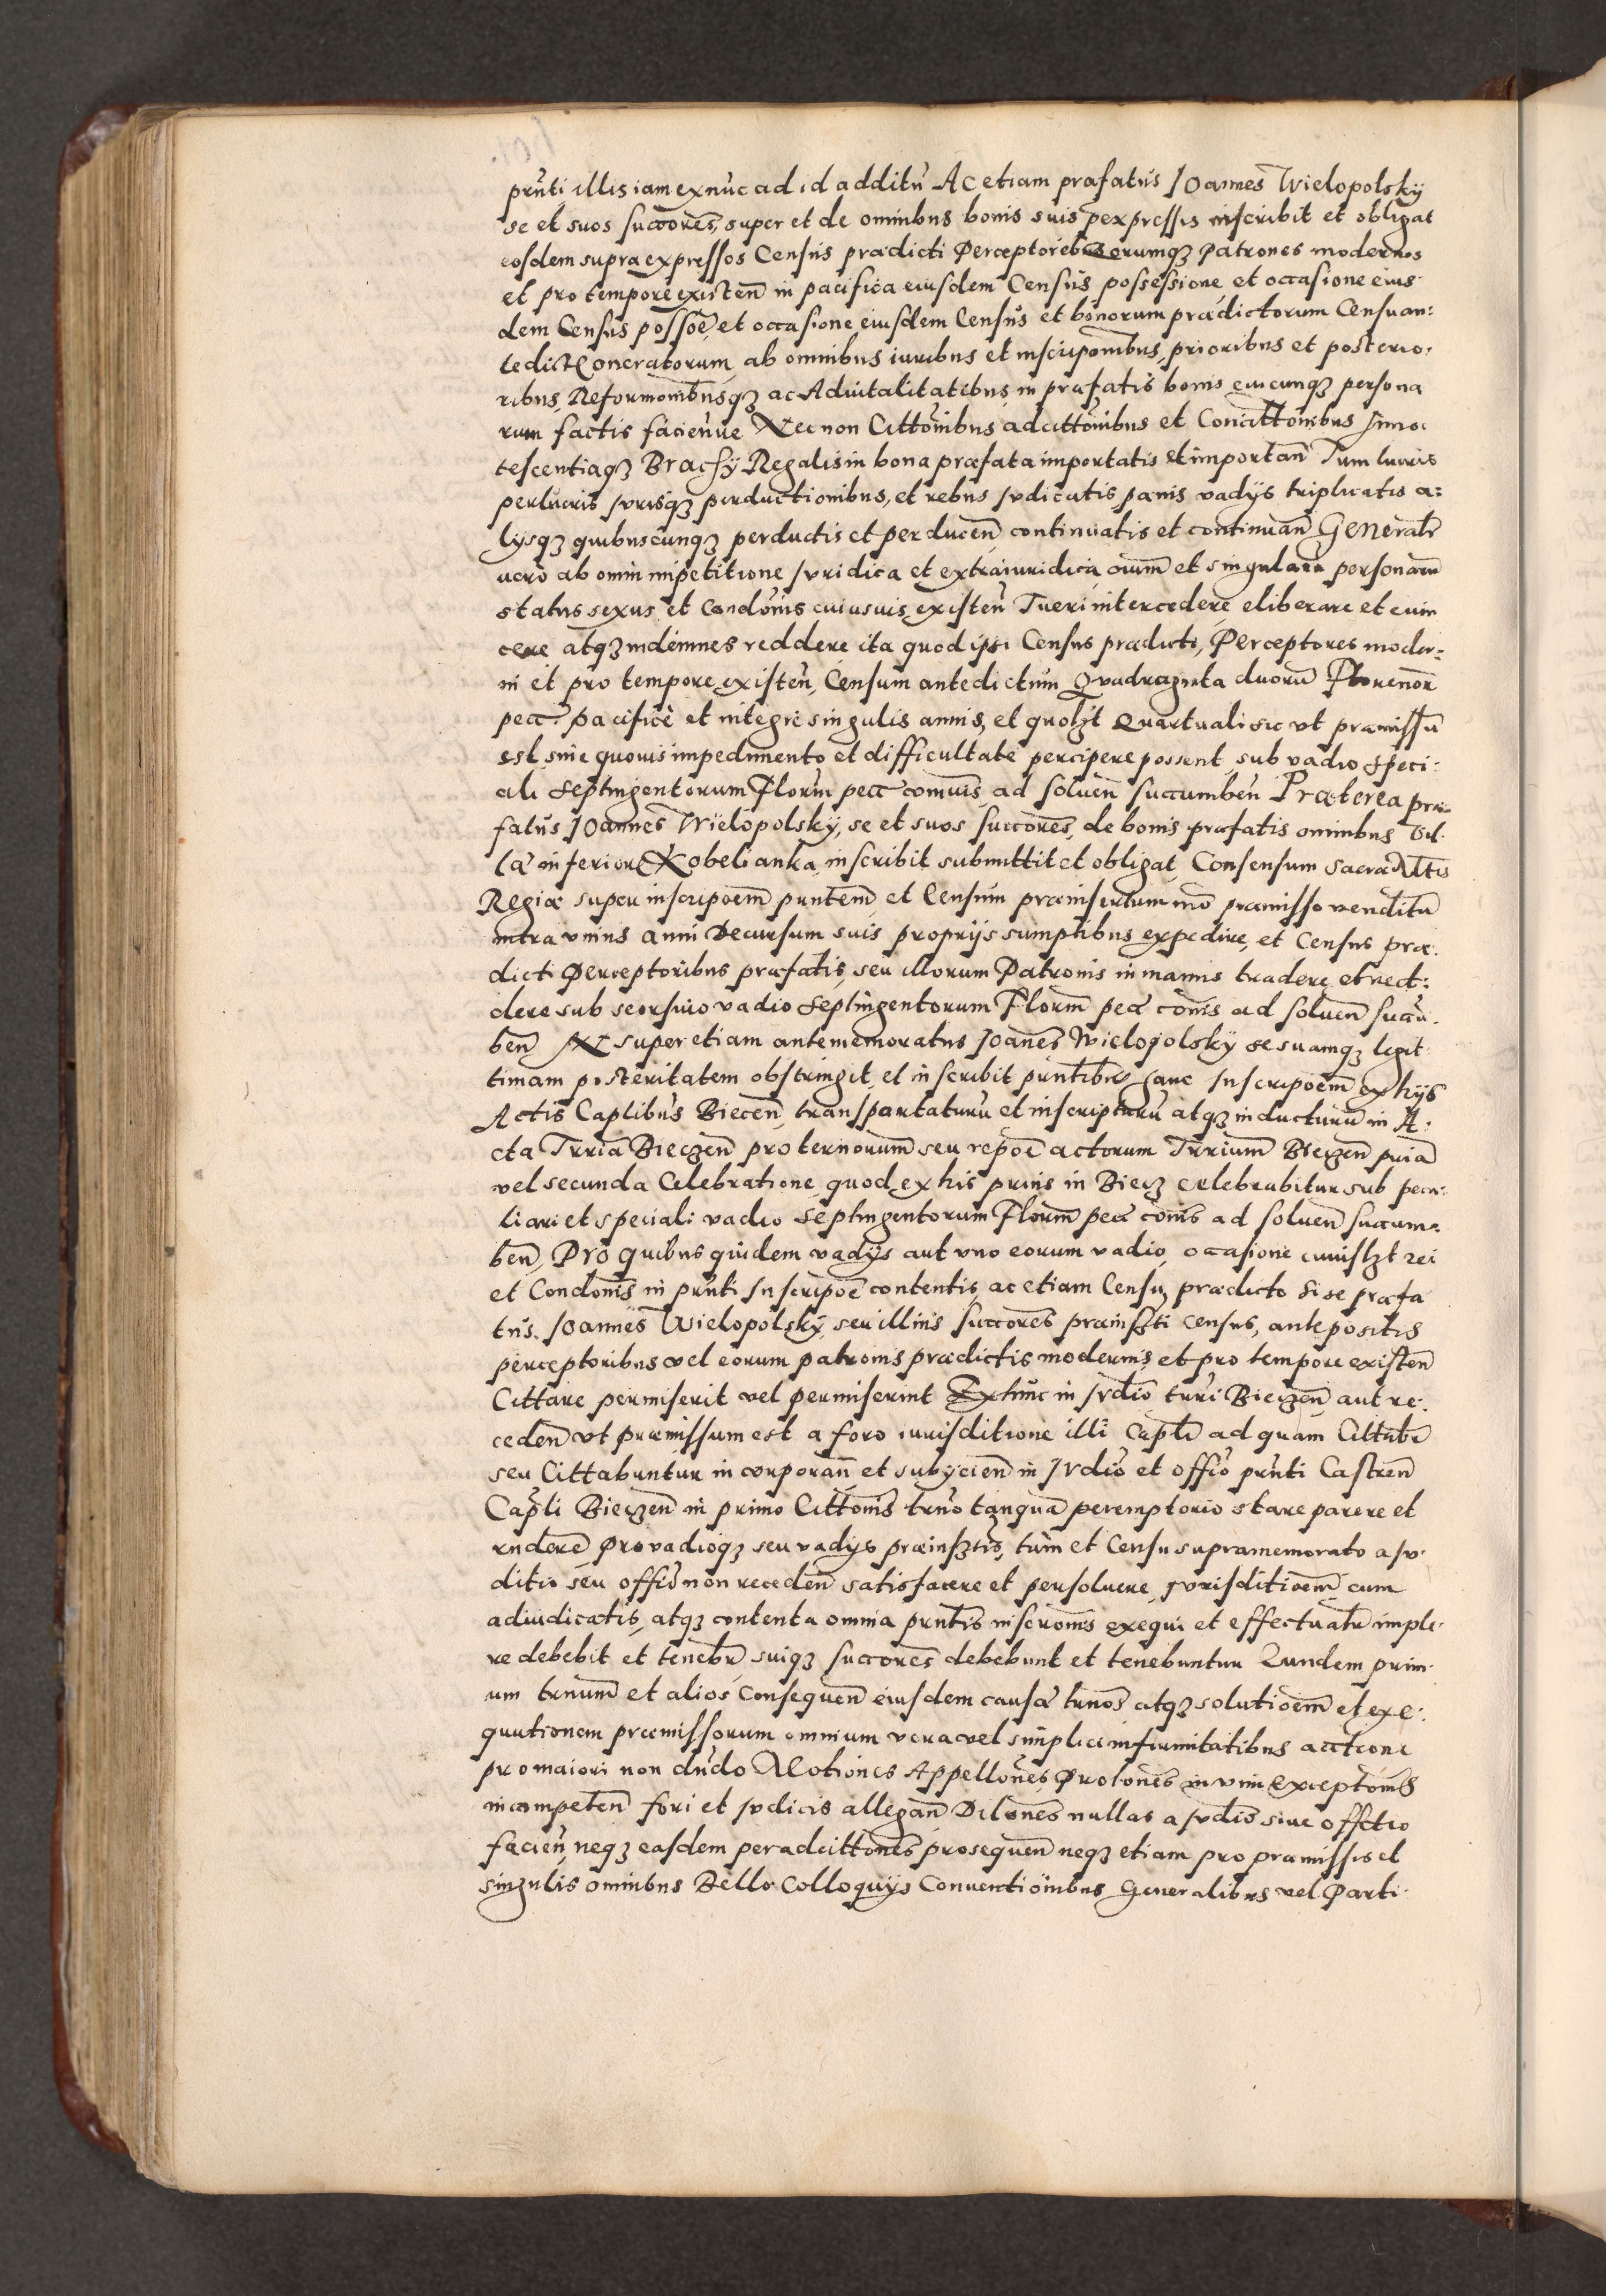 prñti illis iam ex nũc ad id additũ Ac etiam præfatus Joannes Wielopolsky
se et suos succores, super et de omnibus bonis suis pexpressis inscribit et obligat
eosdem supra expressos Census prædicti Perceptores eorumqz Patronos modernos
et pro tempore existeñ in pacifica eiusdem Census possessione et occasione eius
dem Census possoẽ, et occasione eiusdem Census et bonorum prædictorum Censu an:
tedicto oneratorum, ab omnibus iuribus et inscriponibus, prioribus et posterio:
ribus, Reformonibusqz ac Aduitalitatebus, in præfatis bonis cuicunqz persona
rum factis facienve Necnon Cittonibus adcittonibus et Concittonibus Inno:
tescentiaqz Brachÿ Regalis in bona præfata importatis et importañ Tum lucris
perlucris Jurisqz perductionibus, et rebus Judicatis pænis vadÿs triplicatis a:
lÿsqz quibuscunqz perductis et perduceñ continuatis et continuañ Generalr
uero ab omni impetitione Juridica et extraiuridica oium et singularu personaru
status sexus et condonis cuiusuis existeñ Tueri intercedere eliberare et euin
cere atqz indemnes reddere ita quod ipsi Census prædicti, Perceptores moder=
ni et pro tempore existeñ, Censum antedictum Quadraginta duoru Florenor
pecc pacificè et integrè singulis annis, et quolzt Quartuali sic vt præmissũ
est, sine quouis impedimento et difficultate percipere possent, sub vadio speci:
ali septingentorum Floriñ pecc comuis, ad solueñ succumbeñ Præterea præ=
fatus Joannes Wielopolsky, se et suos succores, de bonis præfatis omnibus Vil
la inferiore Kobelianka, inscribit submittit et obligat, Consensum sacræ Mttis
Regiæ super inscripoem pñntem, et Censum præinsertum mõ præmisso venditũ
intra vnius anni Decursum suis proprÿs sumptibus expedire, et Census præ:
dicti Perceptoribus præfatis, seu illorum Patronis in manus tradere et red:
dere sub seorsiuo vadio septingentorum Floriñ pecc comis ad solueñ succũ
beñ Insuper etiam antememoratus Joañes Wielopolsky se suamqz legit
timam posteritatem obstringit et inscribit pñntibus hanc Inscripoem ex hÿs
Actis Captlibus Bieceñ transportaturũ et inscripturũ atqz inducturũ in A:
cta Trria Biecẓeñ pro ternorum seu repoẽ actorum Trrium Bieczeñ pria
vel secunda Celebratione, quod ex his prius in Biecz celebrabitur sub pecu:
liari et speciali vadio septingentorum Florum pecc comis ad solueñ succum=
beñ, Pro quibus quidem vadÿs aut vno eorum vadio, occasione cuiuslzt rei
et Condonis in prñti Inscripoẽ contentis, ac etiam Censu prædicto si se præfa
tus Joannes Wielopolsky, seu illius succores præinsrti census, antepositis
perceptoribus vel eorum patronis prædictis modernis et pro tempore existeñ
Cittare permiserit vel permiserint Ex tunc in Judio trri Bieczeñ aut re:
cedeñ vt præmissum est a foro iurisditione illi Captli ad quam Cittabr
seu Cittabuntur incorporañ et subÿcieñ in Judio et offio prñti Castreñ
Captli Bieczeñ in primo Cittonis trño tanquã peremptorio stare parere et
rndere Pro vadioqz seu vadÿs præinsrtis, tum et Censu supramemorato a Ju:
ditio seu offio non recedeñ satisfacere et persoluere, Jurisditioem cum
adiudicatis, atqz contenta omnia pñntis inscronis exequi et effectuatr imple
re debebit et tenebr suiqz succores debebunt et tenebuntur Eundem prim
um trnum et alios consequeñ eiusdem causæ trños atqz solutioem et exe:
quutionem præmissorum omnium vera vel simplici infirmitatibus acctione
pro maiori non dñdo Motiones Appellones Prolones in vim exceptonis
incompeteñ fori et Judicis allegañ Dilones nullas a Judio siue offitio
facieñ, neqz easdem per adcittones prosequeñ neqz etiam pro præmissis et
singulis omnibus Bello Colloquÿs Conuentionibus Generalibus vel Parti: